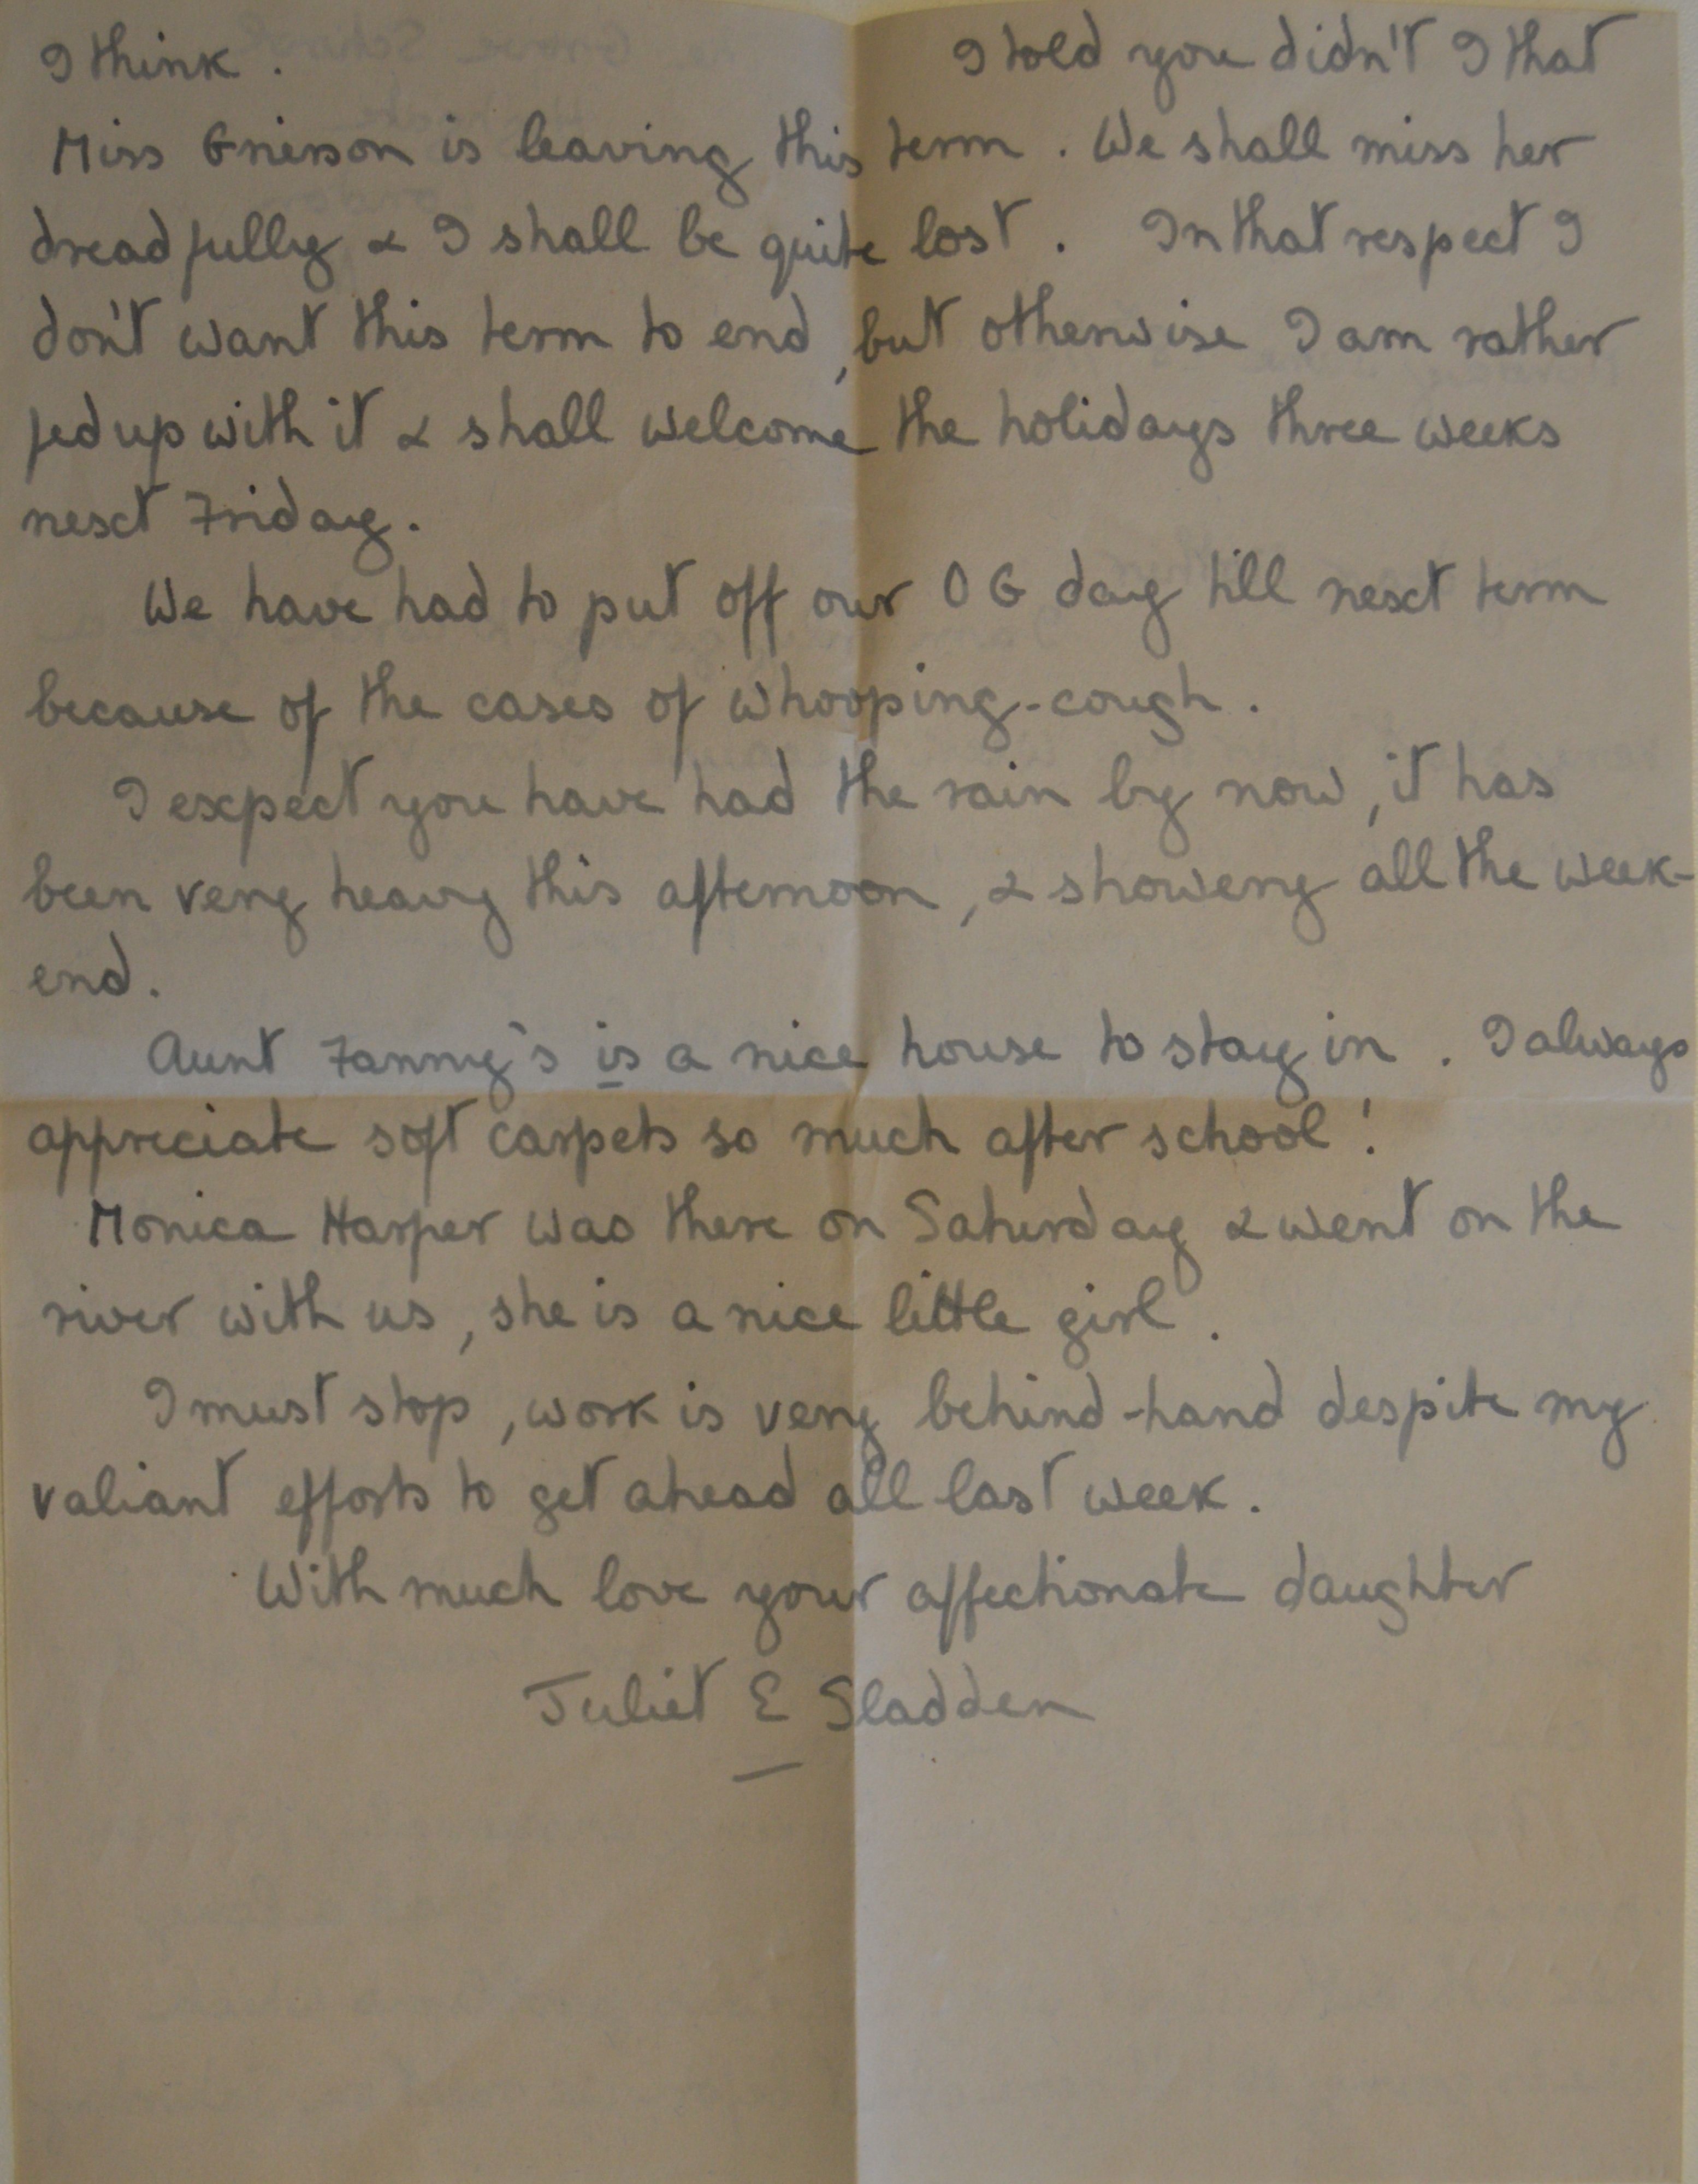 I think. I told you didn't I that
Miss Grierson is leaving this term. We shall miss her
dreadfully & I shall be quite lost. In that respect I
don't want this term to end, but otherwise I am rather
fed up with it & shall welcome the holidays three weeks
next Friday.
We have had to put off our O G day till next term
because of the cases of whooping-cough.
I expect you have had the rain by now, it has
been very heavy this afternoon, & showery all the week-
end.
Aunt Fanny's is a nice house to stay in. I always
appreciate soft carpets so much after school!
Monica Harper was there on Saturday & went on the
river with us, she is a nice little girl.
I must stop, work is very behind-hand despite my
valiant efforts to get ahead all last week.
With much love your affectionate daughter
Juliet E Sladden